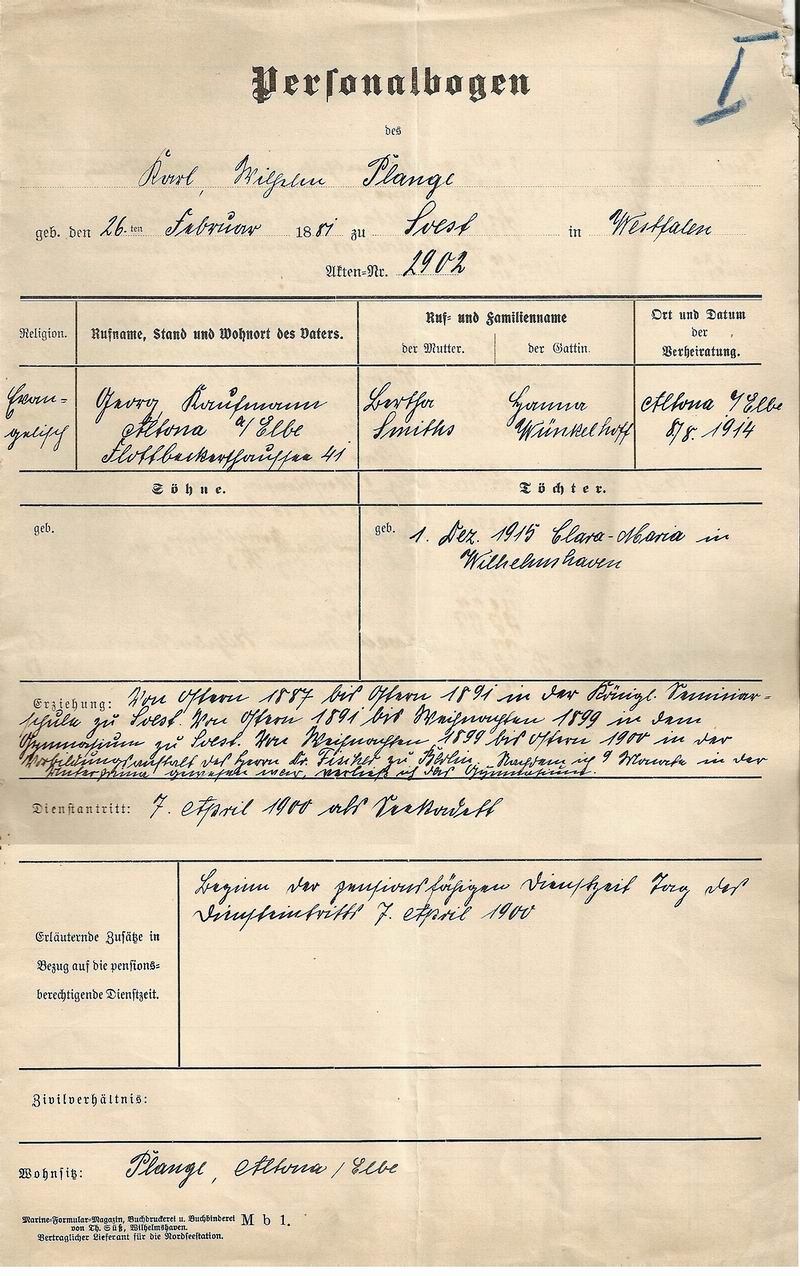 I
Personalbogen
des
Karl, Wilhelm Plange
geb. den 26.ten Februar 1881 zu Soest in Westfalen
Akten-Nr. 2902
Religion.
Rufname, Stand und Wohnort des Vaters.
Ruf- und Familienname
der Mutter.
der Gattin.
Ort und Datum
der
Verheiratung.
Evan-
gelisch
Georg Kaufmann
Altona a/Elbe
Flottbeckerchaussee 41
Bertha
Smiths
Hanna
Wünkelhoff
Altona a/Elbe
8/8. 1914
Söhne.
Töchter.
geb.
geb. 1. Dez. 1915 Clara-Maria in
Wilhelmshaven
Erziehung: Von Ostern 1887 bis Ostern 1891 in der Königl. Seminar-
schule zu Soest. Von Ostern 1891 bis Weihnachten 1899 in dem
Gymnasium zu Soest. Von Weihnachten 1899 bis Ostern 1900 in der
Vorbildungsanstalt des Herrn Dr. Fischer zu Berlin. Nachdem ich 9 Monate in der
Unterprima gewesen war, verließ ich das Gymnasium.
Dienstantritt: 7. April 1900 als Seekadett
Erläuternde Zusätze in
Bezug auf die pensions-
berechtigende Dienstzeit.
Beginn der pensionsfähigen Dienstzeit Tag des
Diensteintritts 7. April 1900
Zivilverhältnis:
Wohnsitz: Plange, Altona / Elbe
Marine-Formular-Magazin, Buchdruckerei u. Buchbinderei M b 1.
von Th. Süß, Wilhelmshaven.
Vertraglicher Lieferant für die Nordseestation.